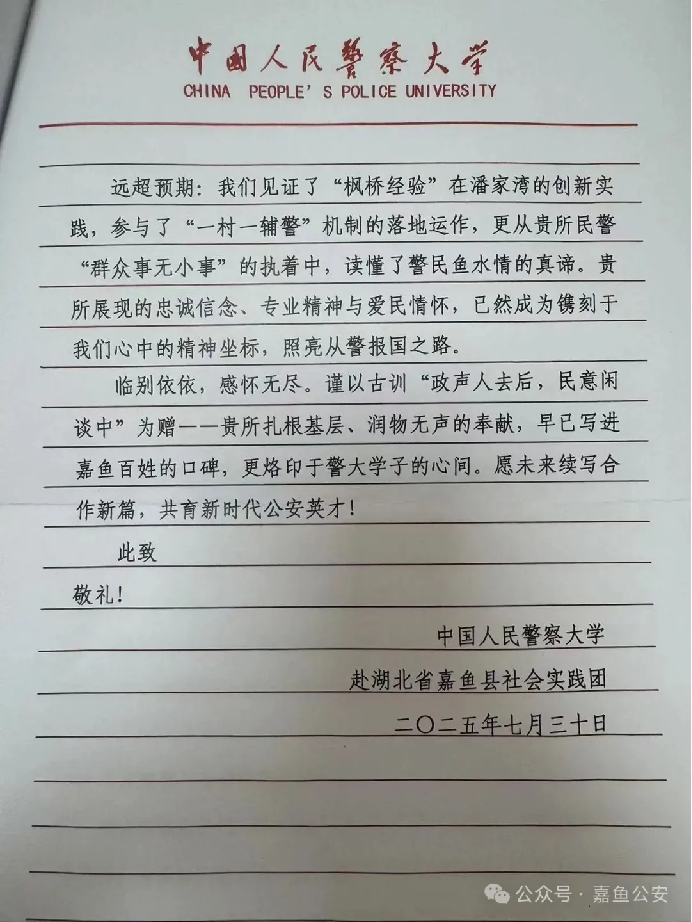 中国人民警察大学
CHINA PEOPLE'S POLICE UNIVERSITY
远超预期：我们见证了“枫桥经验”在潘家湾的创新实
践，参与了“一村一辅警”机制的落地运作，更从贵所民警
“群众事无小事”的执着中，读懂了警民鱼水情的真谛。贵
所展现的忠诚信念、专业精神与爱民情怀，已然成为镌刻于
我们心中的精神坐标，照亮从警报国之路。
临别依依，感怀无尽。谨以古训“政声人去后，民意闲
谈中”为赠——贵所扎根基层、润物无声的奉献，早已写进
嘉鱼百姓的口碑，更烙印于警大学子的心间。愿未来续写合
作新篇，共育新时代公安英才！
此致
敬礼！
中国人民警察大学
赴湖北省嘉鱼县社会实践团
二〇二五年七月三十日
公众号·嘉鱼公安